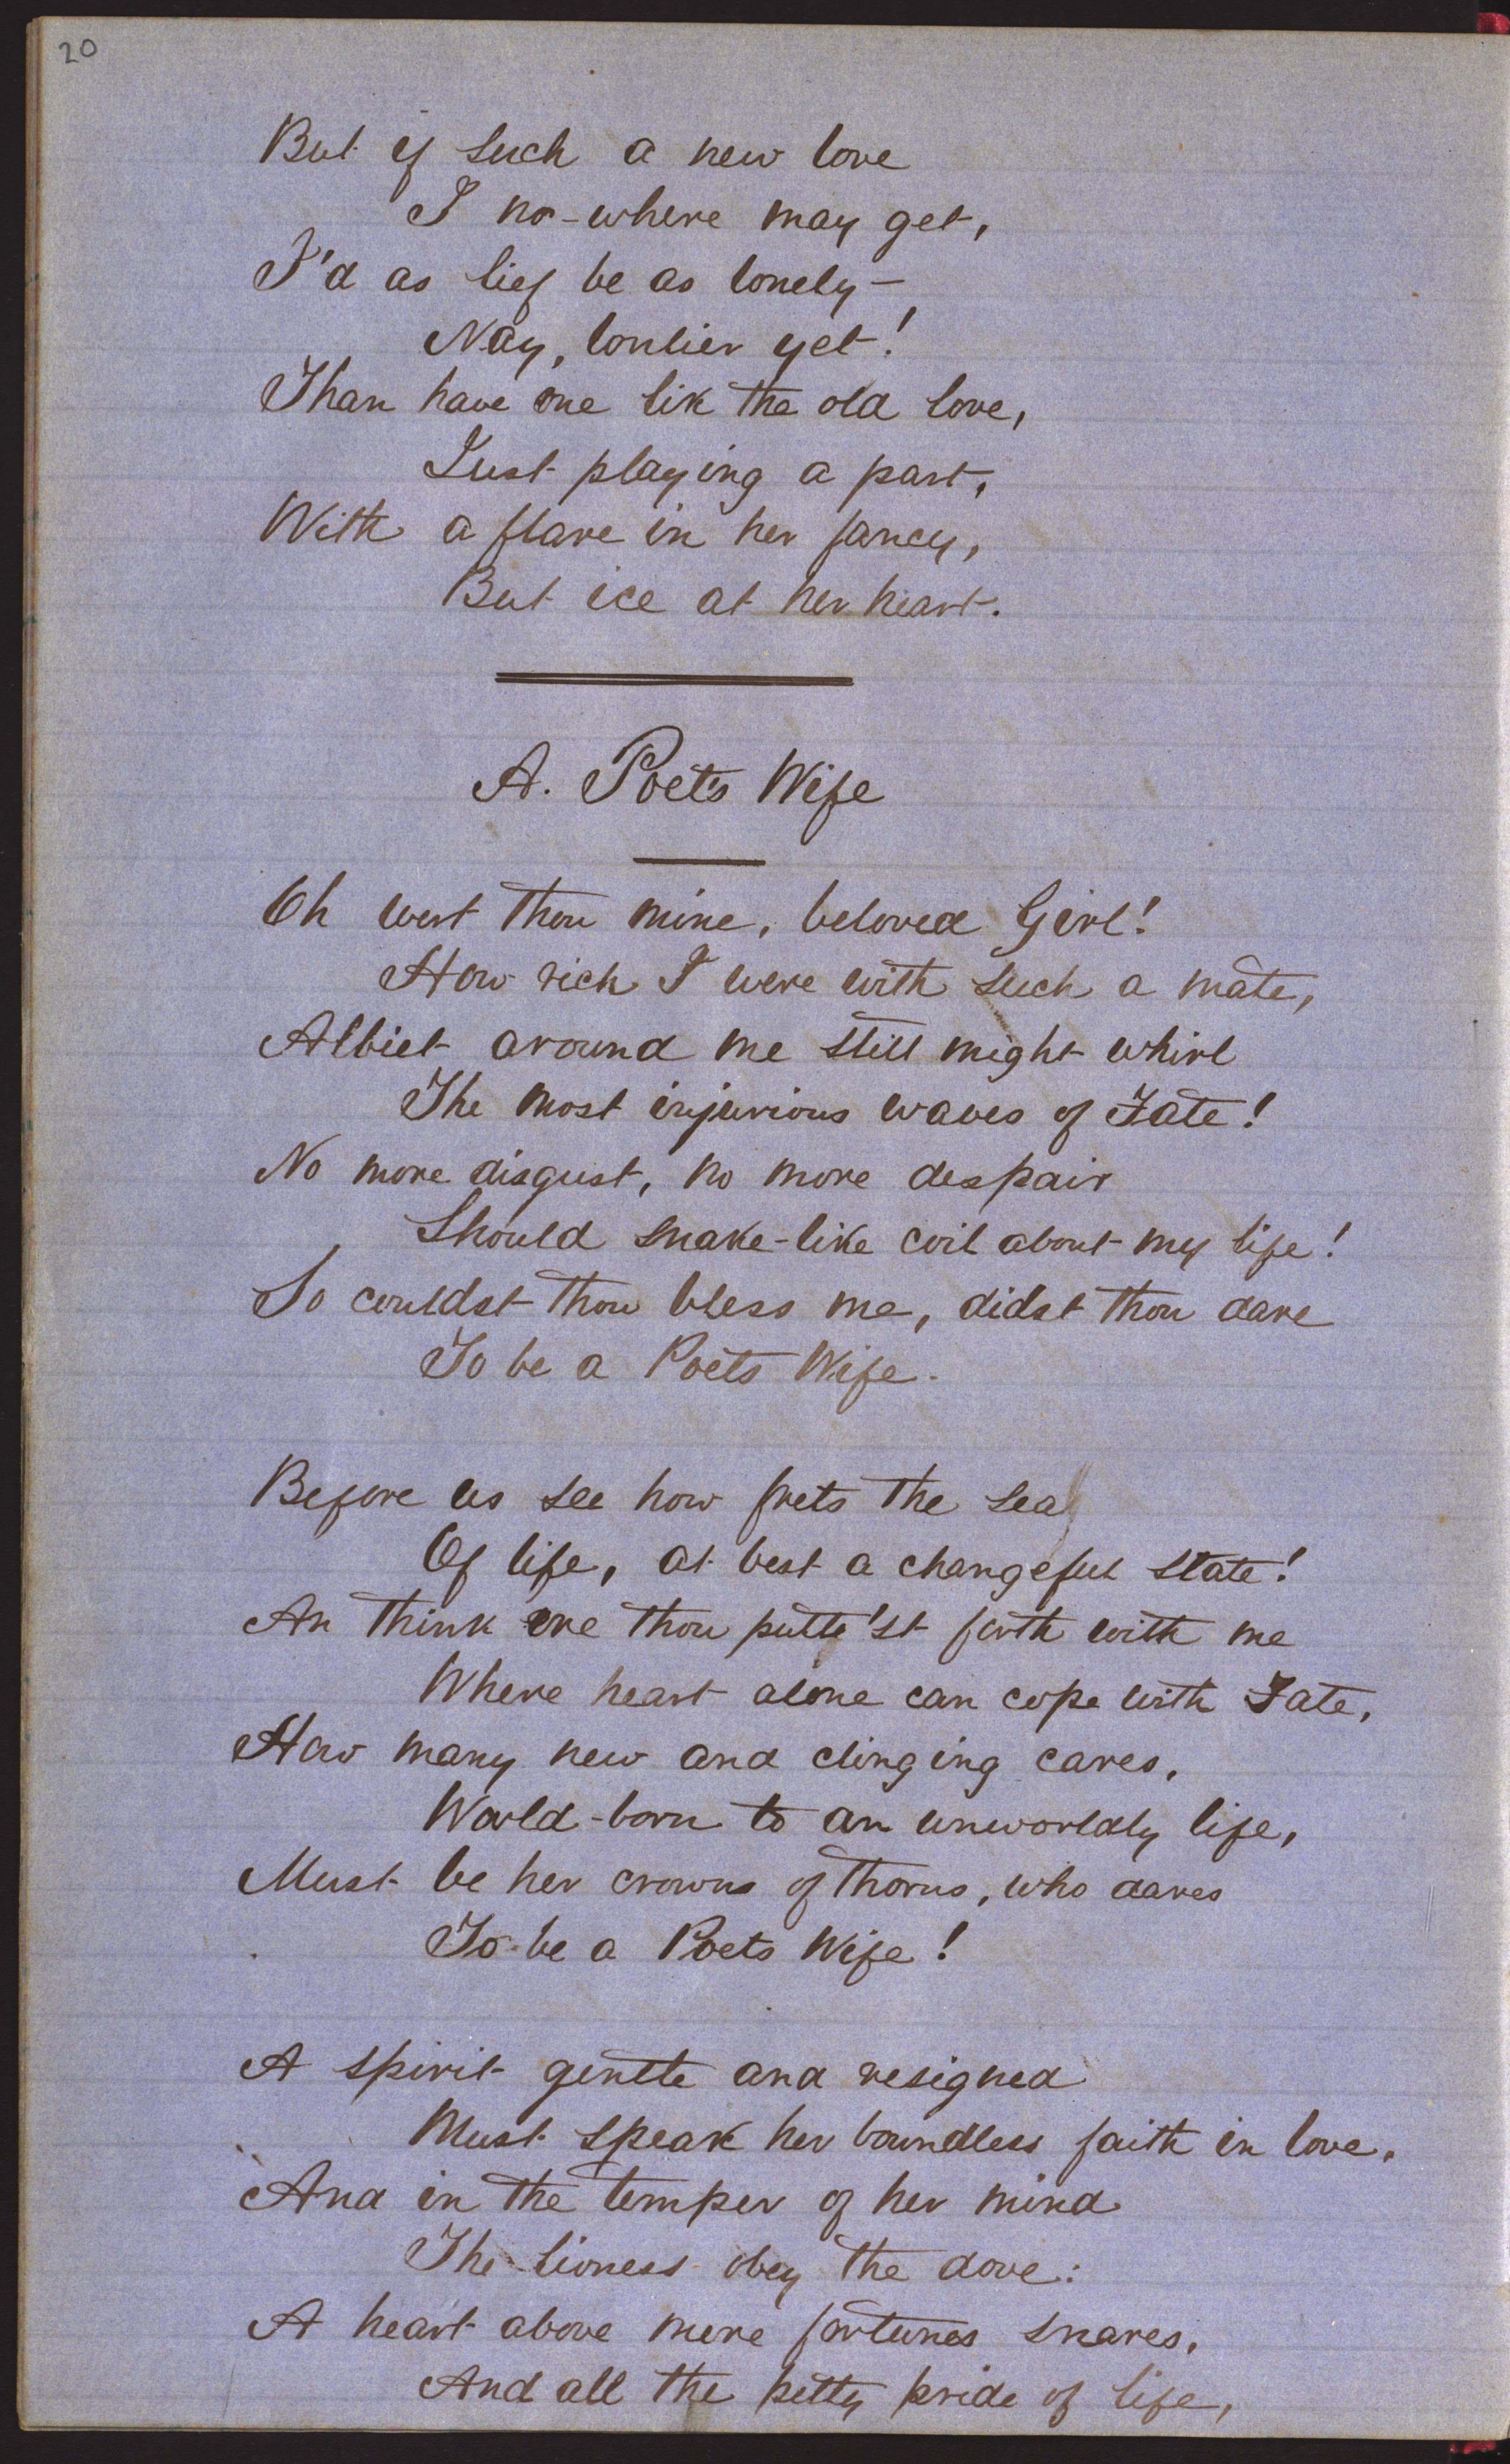 20
But if such a new love
I no-where may get,
I'd as lief be as lonely—
Nay, lonlier yet!
Than have one lik the old love,
Just playing a part,
With a flare in her fancy,
But ice at her heart.
A. Poets Wife
Oh wert thou mine, beloved Girl!
How rich I were with such a mate,
Albiet around me still might whirl
The most injurious waves of Fate!
No more disgust, no more despair
Should snake-like coil about my life!
So couldst thou bless me, didst thou dare
To be a Poets Wife.
Before us see how frets the sea
Of life, at best a changeful state!
An think ere thou putte'st forth with me
Where heart alone can cope with Fate,
How many new and clinging cares,
World-born to an unworldly life,
Must be her crowns of thorns, who dares
To be a Poets Wife!
A spirit gentle and resigned
Must speak her boundless faith in love,
And in the temper of her mind
The lioness obey the dove:
A heart above mere fortunes snares,
And all the petty pride of life,